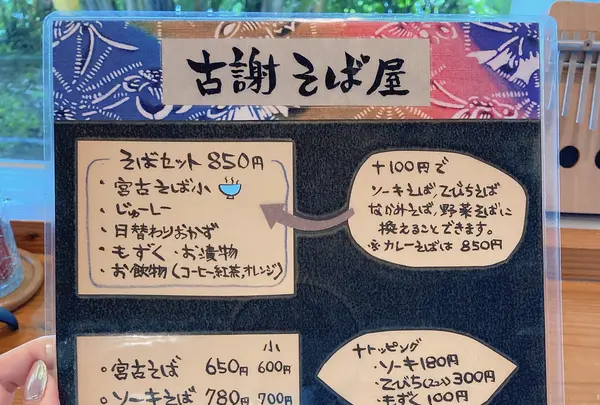 古謝そば屋
そばセット 850円
・宮古そば小
・じゅーしー
・日替わりおかず
・もずく・お漬物
・お飲物(コーヒー,紅茶,オレンジ)
+100円で
ソーキそば,てびちそば
なかみそば,野菜そばに
換えることできます。
※カレーそばは 850円
小
○宮古そば 650円 600円
○ソーキそば 780円 700円
+トッピング
・ソーキ180円
・てびち(2コ)300円
・もずく 100円